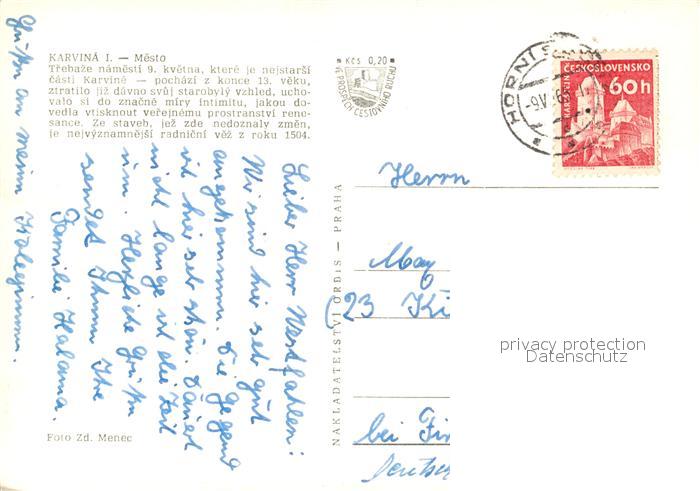 KARVINÁ I. — Město
Třebaže náměstí 9. května, které je nejstarší
částí Karviné — pochází z konce 13. věku,
ztratilo již dávno svůj starobylý vzhled, ucho-
valo si do značné míry intimitu, jakou do-
vedla vtisknout veřejnému prostranství rene-
sance. Ze staveb, jež zde nedoznaly změn,
je nejvýznamnější radniční věž z roku 1504.
Kčs 0,20
VE PROSPĚCH CESTOVNÍHO RUCHU
HORNÍ
-9.V.
ČESKOSLOVENSKO
KARLŠTEJN
60h
Lieber Herr Westfahlen!
Wir sind hier ser gut
angekommen. Die Gegend
ist hier ser schön. Dauert
nicht lange ist die Zeit
um. Herzliche Grüße
sendet Ihnen Ihre
Familie Halama.
Grüßen an meine Kolleginnen.
Foto Zd. Menec
NAKLADATELSTVÍ ORBIS — PRAHA
Herrn
May
(23 Ki
bei Fir
Deutsc
privacy protection
Datenschutz